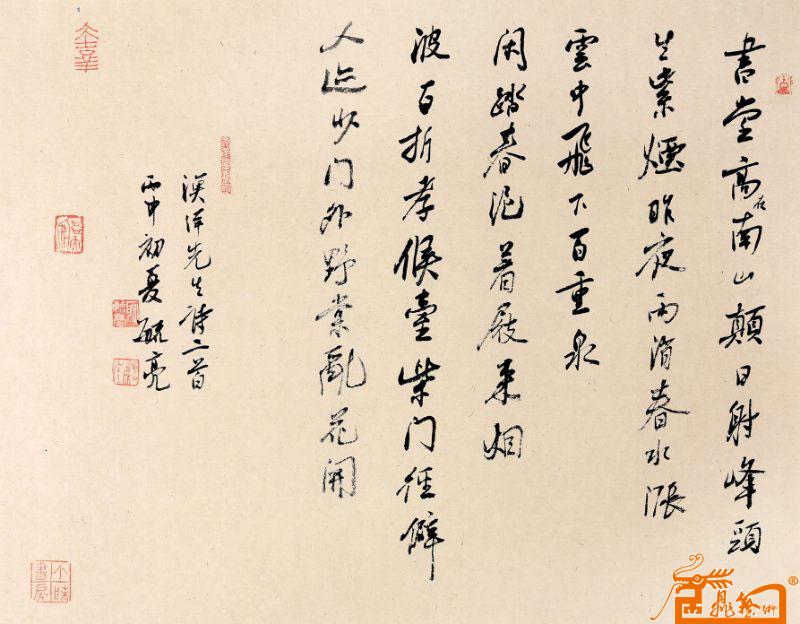 書堂高在南山顛日射峰頭
生紫煙昨夜雨滴春水漲
雲中飛下百重泉
閑踏春泥着屐來烟
波百折孝侯臺柴門徑僻
人迹少門外野棠亂花開
漢洋先生詩二首
丙申初夏毓亮